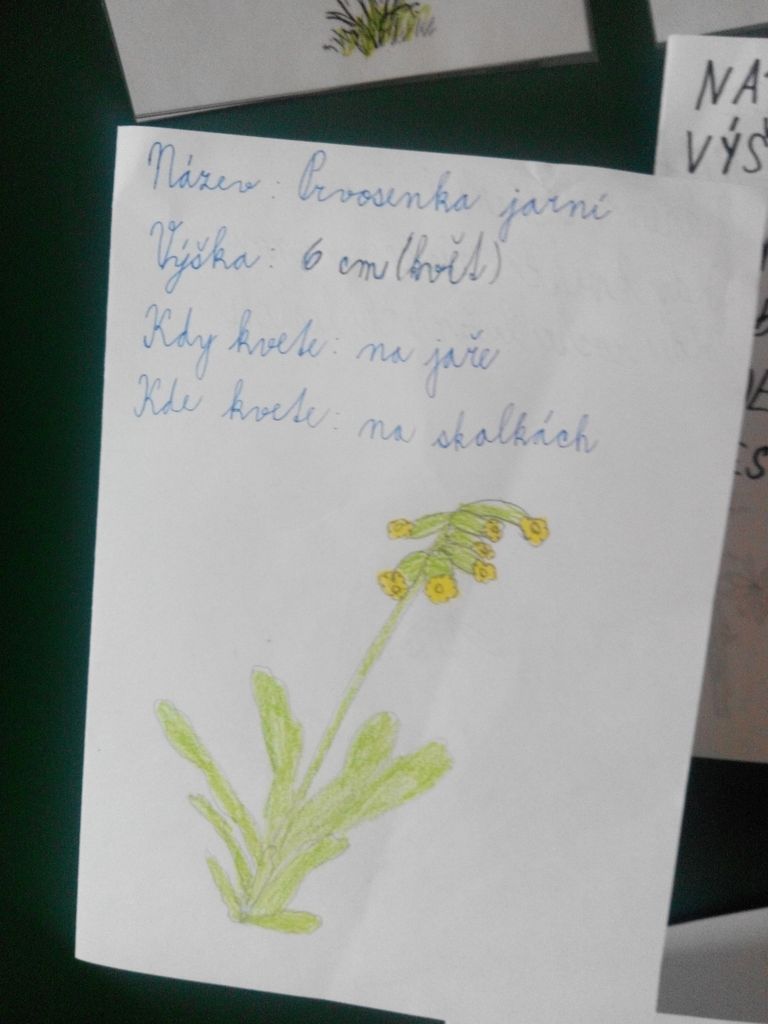 Název: Prvosenka jarní
Výška: 6 cm (květ)
Kdy kvete: na jaře
Kde kvete: na skalkách
NA
VÝŠ